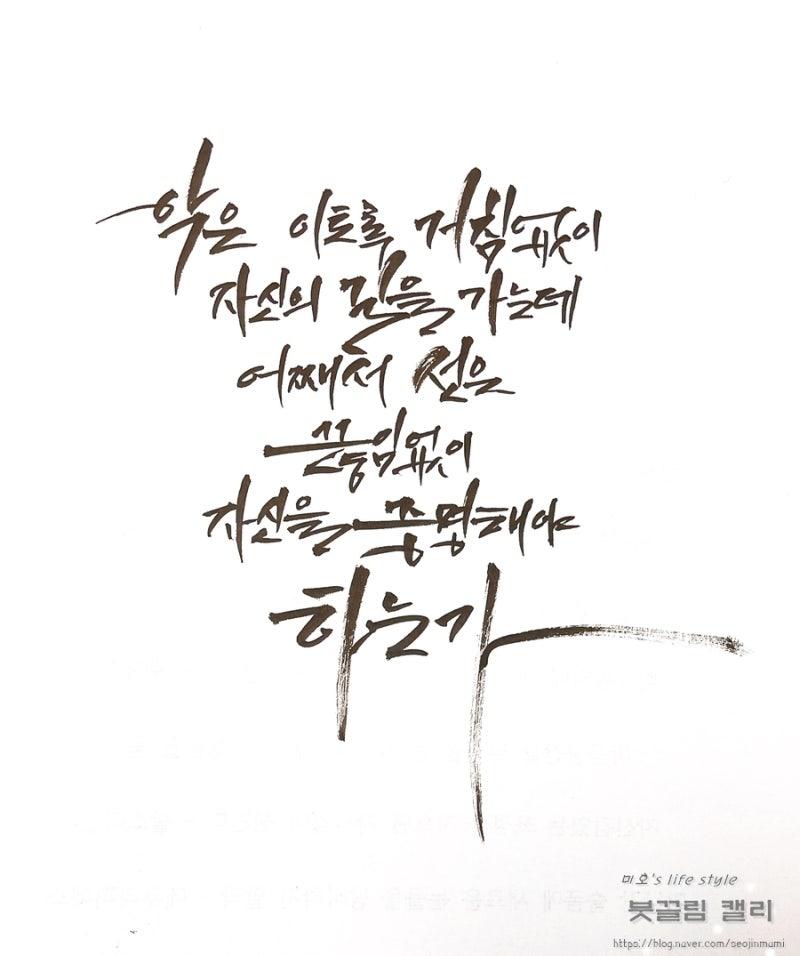 악은 이토록 거침없이
자신의 길을 가는데
어째서 선은
끊임없이
자신을 증명해야
하는가
미오's life style
붓끌림 캘리
https://blog.naver.com/seojinmami